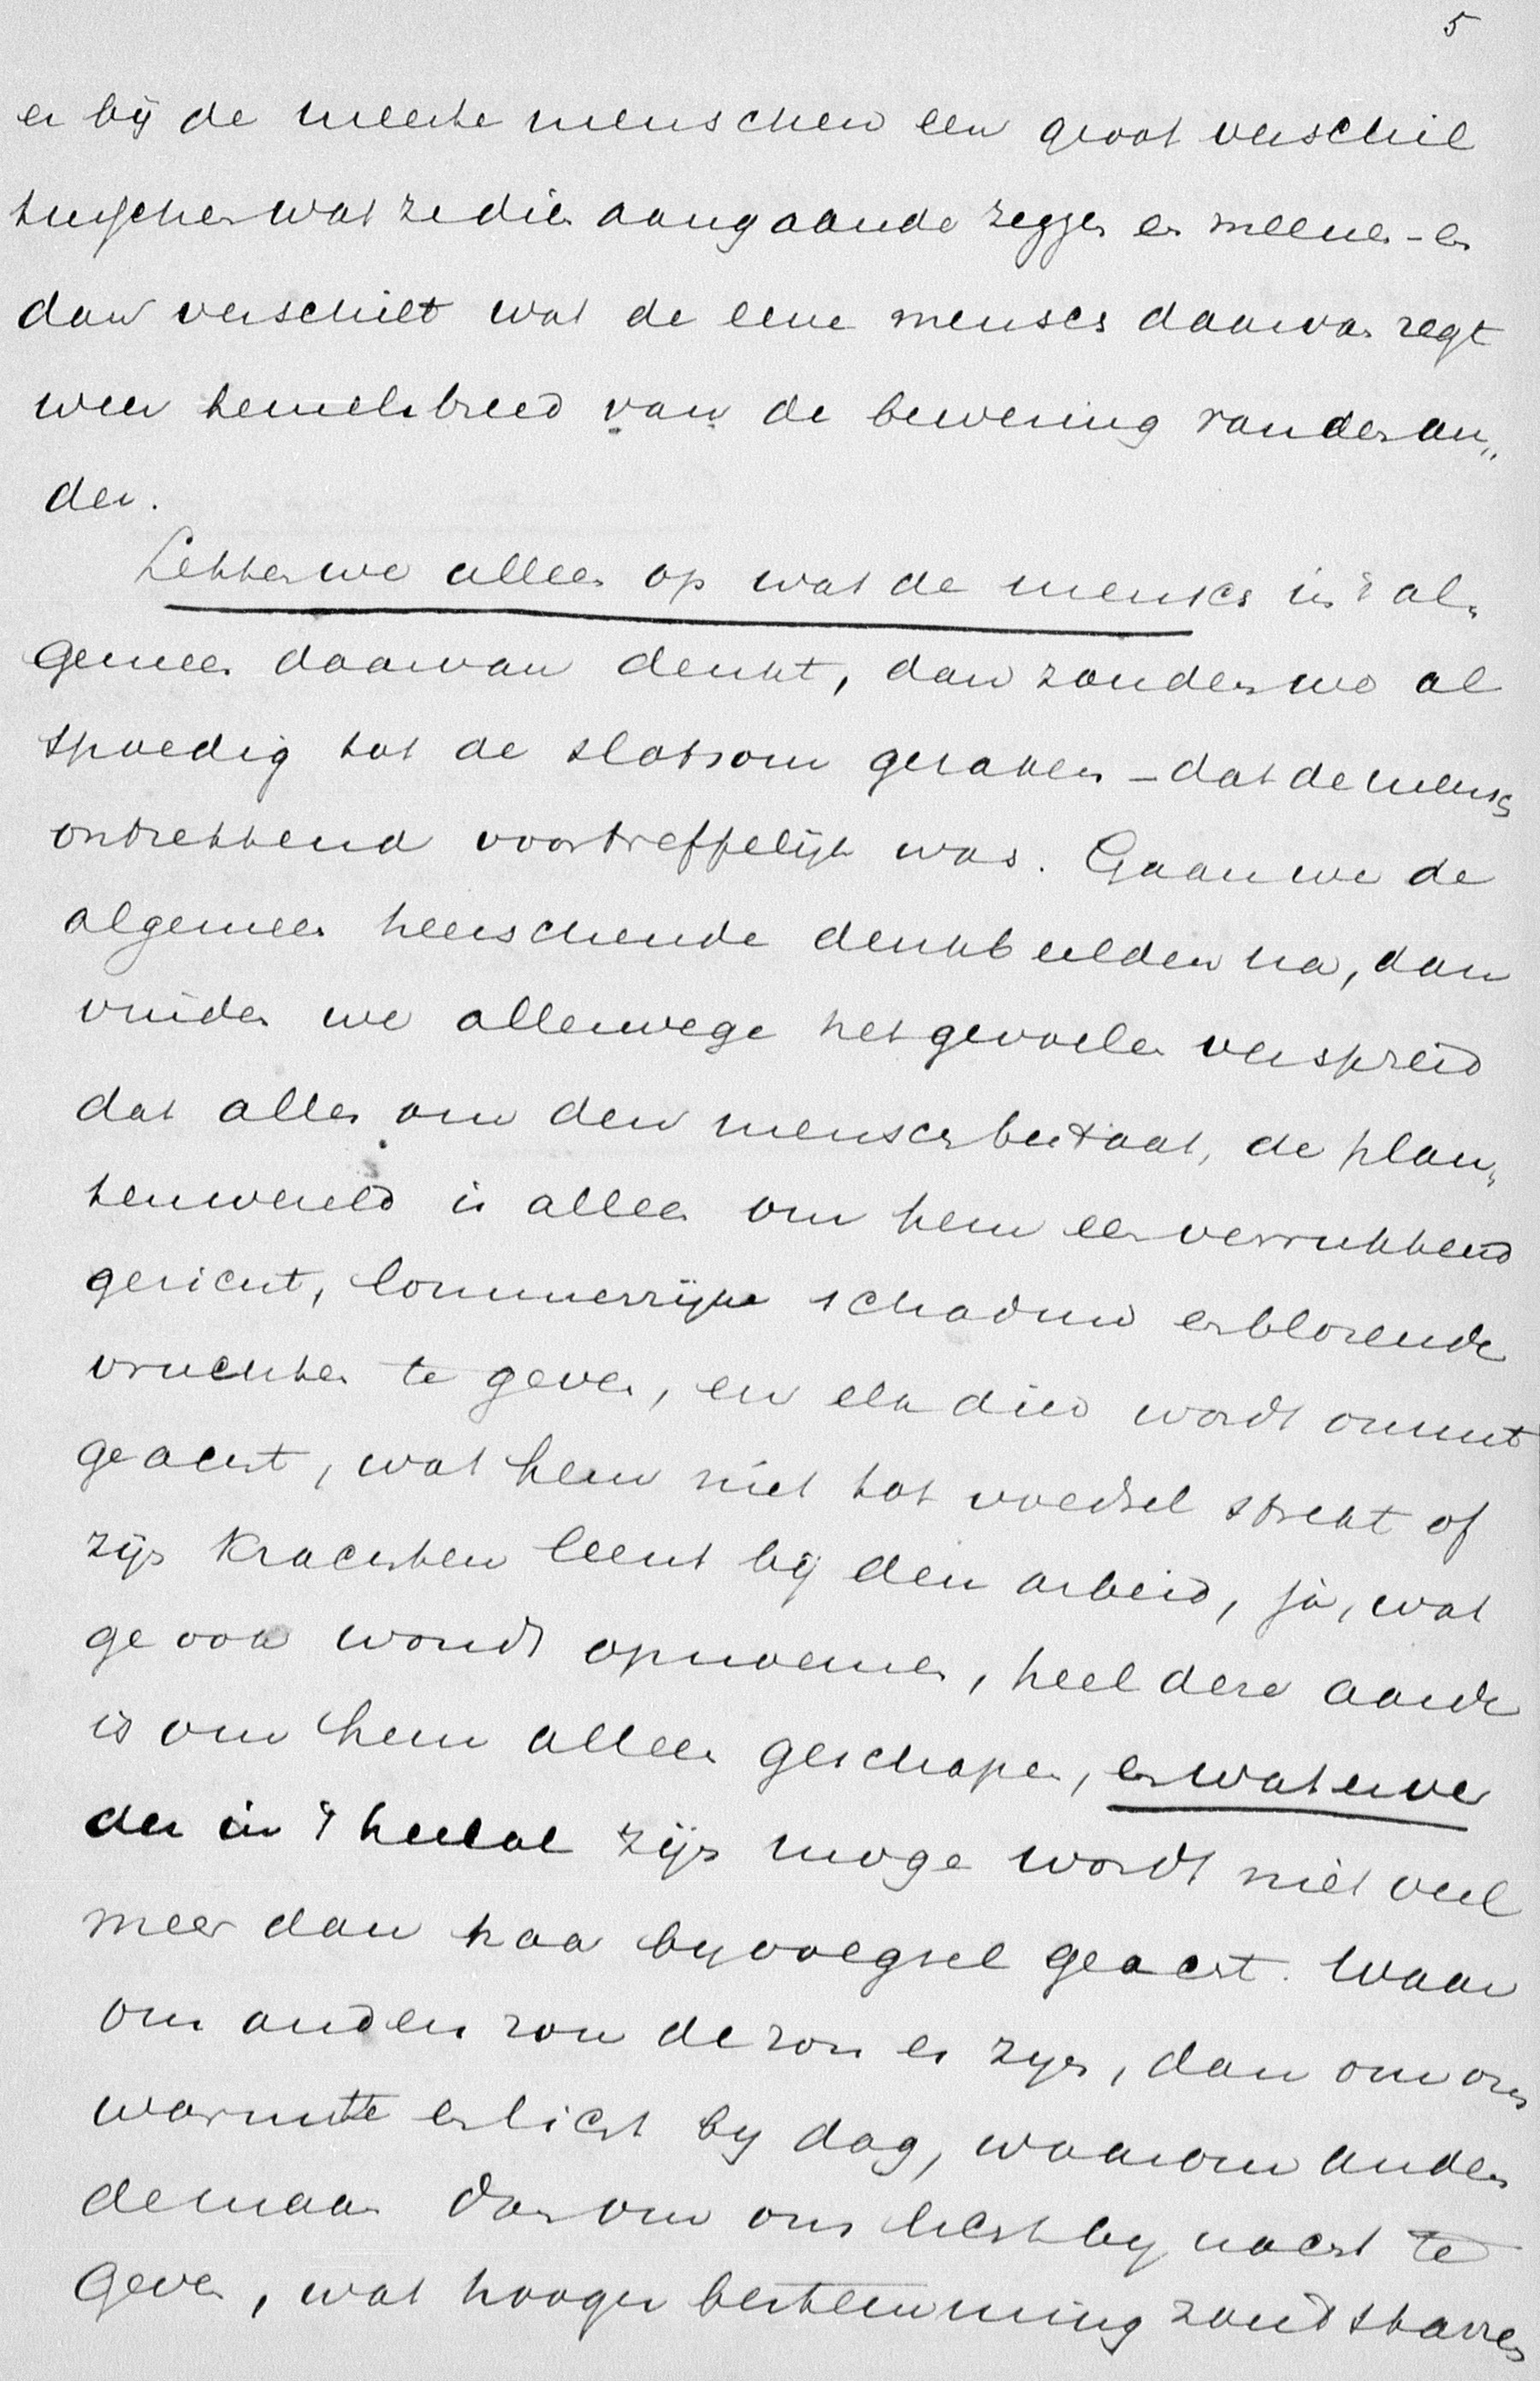 5
er bij de meeste menschen een groot verschil
tusschen wat ze dien aangaande zeggen en meenen - en
dan verschilt wat de eene mensch daarvan zegt
weer hemelsbreed van de bewering van den an„
der.
Letten we alleen op wat de mensch in 't al„
gemeen daarvan denkt, dan zouden we al
spoedig tot de slotsom geraken - dat de mensch
ontzettend voortreffelijk was. Gaan we de
algemeen heerschende denkbeelden na, dan
vinden we allerwege het gevoelen verspreid
dat alles om den mensch bestaat, de plan„
tenwereld is alleen om hem een verrukkend
gezicht, lommerrijke schaduw en blozende
vruchten te geven, en elk dier wordt onnut
geacht, wat hem niet tot voedsel strekt of
zijn krachten leent bij den arbeid, ja, wat
ge ook wondt opnoemen, heel deze aarde
is om hem alleen geschapen, en wat er ver
der in 't heelal zijn moge wordt niet veel
meer dan haar byvoegsel geacht. Waar
om anders zou de zon er zyn, dan om ons
warmte en licht by dag, waarom anders
de maan dan om ons licht by nacht te
geven, wat hooger bestemming zoud starren